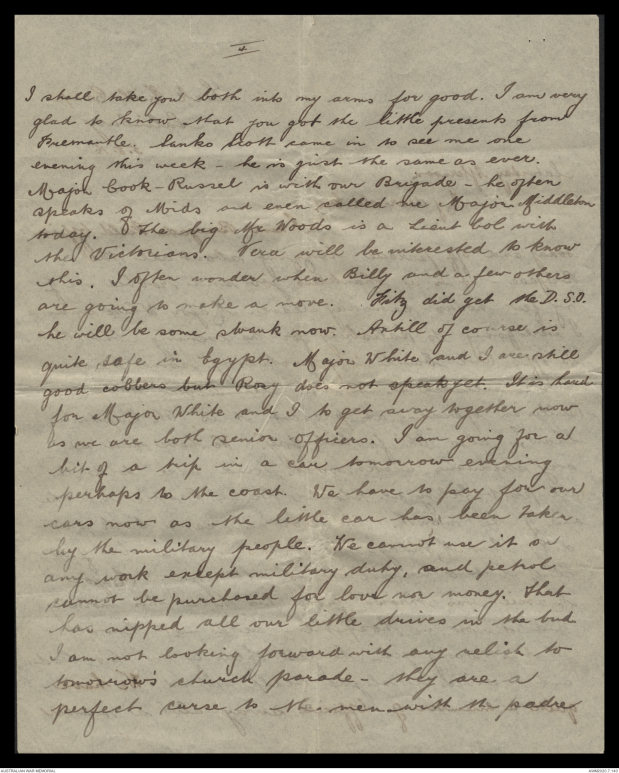 4
I shall take you both into my arms for good. I am very
glad to know that you got the little presents from
Fremantle. Lanko Scott came in to see me one
evening this week – he is just the same as ever.
Major Cook-Russel is with our Brigade – he often
speaks of Mids and even called me Major Middleton
today. The big Mr Woods is a Lieut Col with
the Victorians. Vera will be interested to know
this. I often wonder when Billy and a few others
are going to make a move. Fitz did get the D.S.O.
he will be some swank now. Antill of course is
quite safe in Egypt. Major White and I are still
good cobbers but Rosy does not speak yet. It is hard
for Major White and I to get away together now
as we are both senior officers. I am going for a
bit of a trip in a car tomorrow evening
perhaps to the coast. We have to pay for our
cars now as the little car has been taken
by the military people. We cannot use it on
any work except military duty, and petrol
cannot be purchased for love nor money. That
has nipped all our little drives in the bud
I am not looking forward with any relish to
tomorrow's church parade – they are a
perfect curse to the men with the padre
AUSTRALIAN WAR MEMORIAL